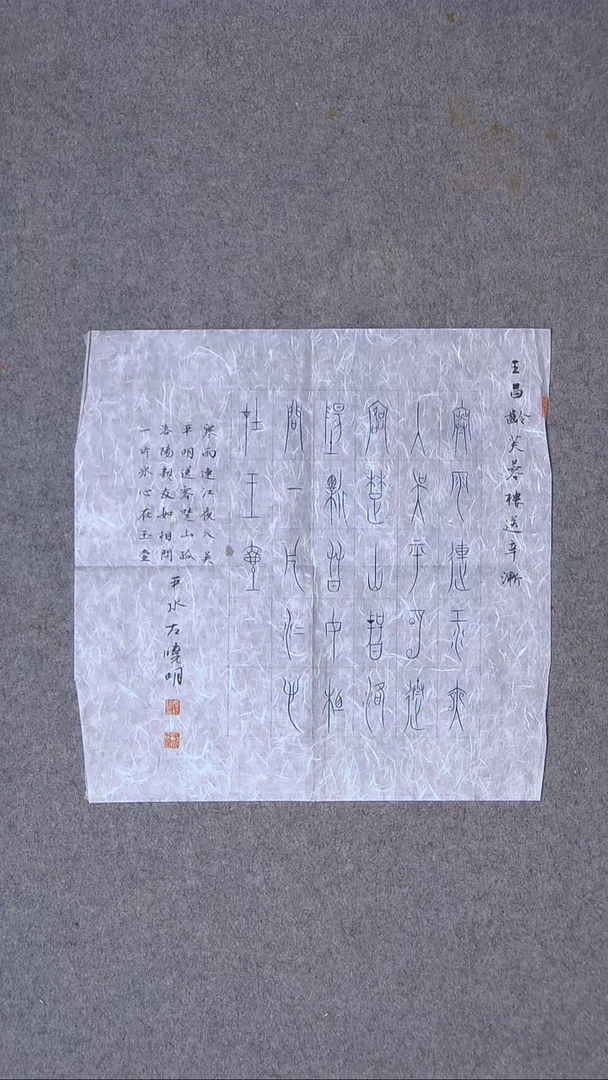 王昌齡芙蓉樓送辛漸
寒雨連江夜
入吳平明送
客楚山孤洛
陽親友如相
問一片冰心
在玉壺
寒雨連江夜入吳
平明送客楚山孤
洛陽親友如相問
一片冰心在玉壺
平水左曉明